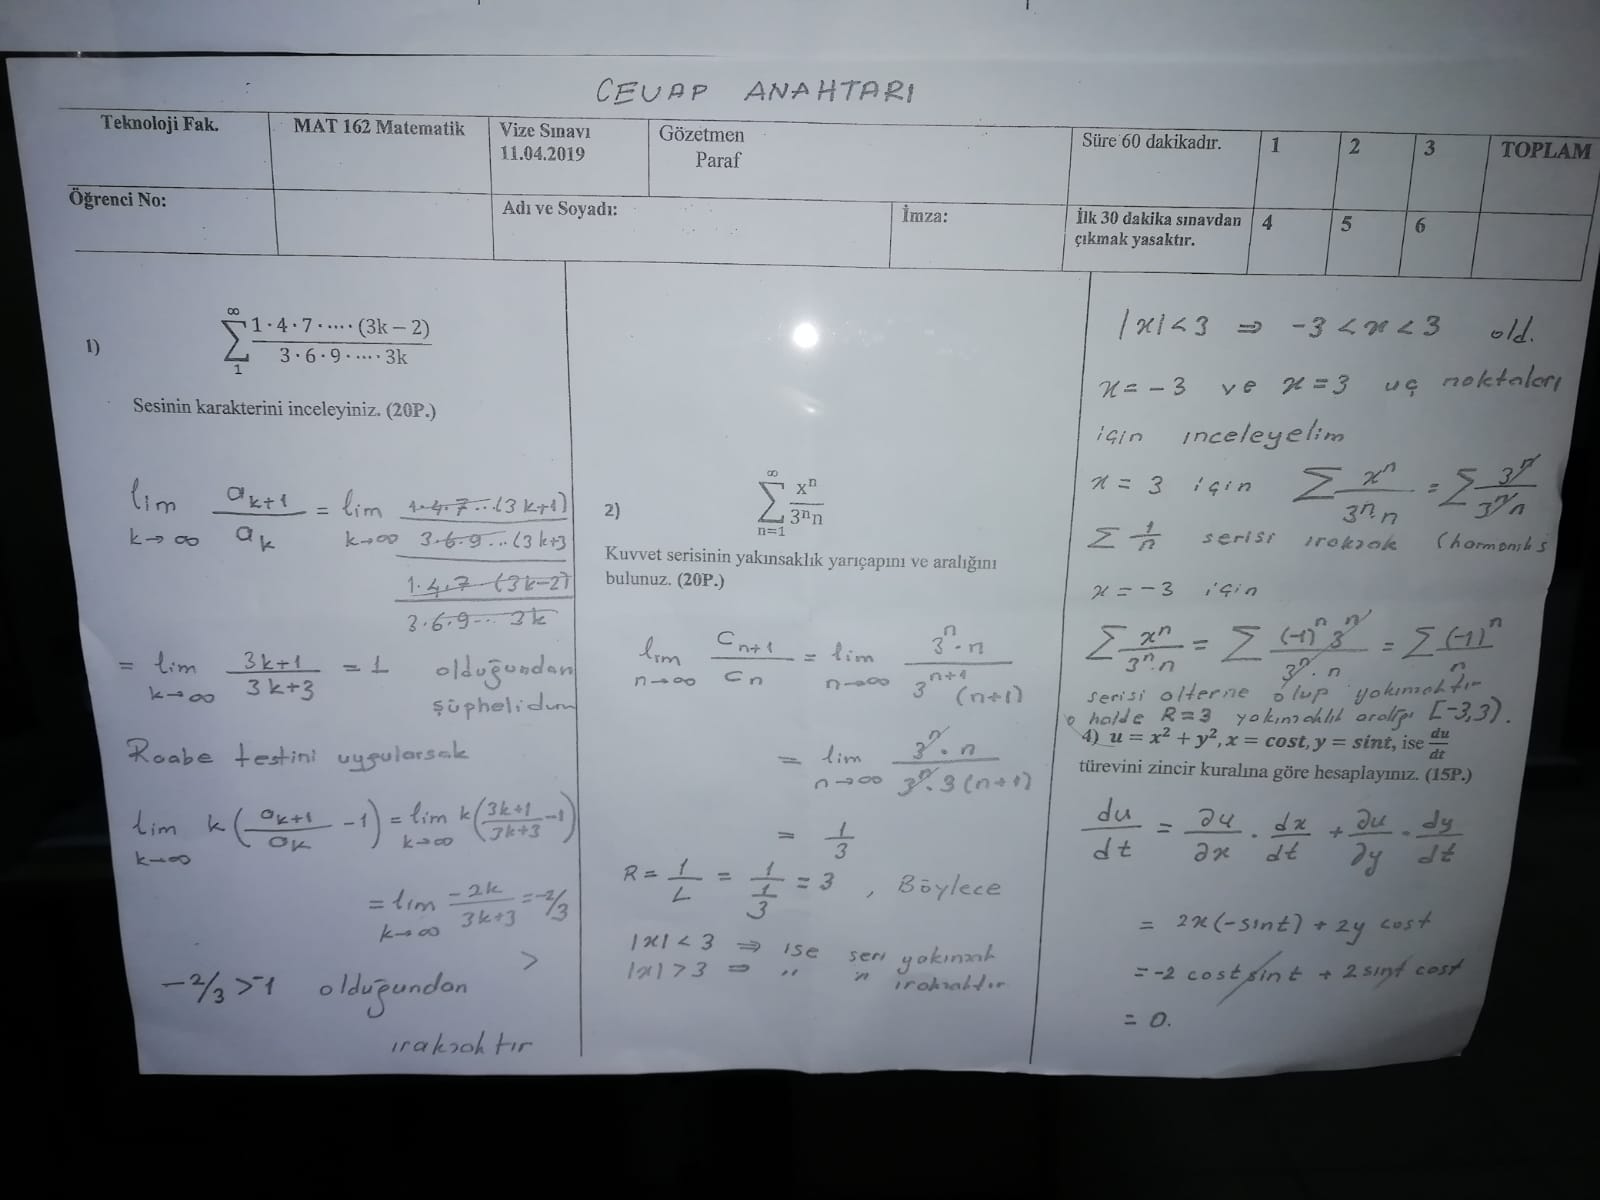 CEVAP ANAHTARI
Teknoloji Fak. MAT 162 Matematik Vize Sınavı 11.04.2019 Gözetmen Paraf Süre 60 dakikadır. 1 2 3 TOPLAM
Öğrenci No: Adı ve Soyadı: İmza: İlk 30 dakika sınavdan çıkmak yasaktır. 4 5 6
1) ∞ ∑ 1 1·4·7·····(3k – 2) / 3·6·9·····3k
Sesinin karakterini inceleyiniz. (20P.)
lim k→∞ a_{k+1} / a_k = lim k→∞ 1.4.7...(3k+1) / 3.6.9...(3k+3
1.4.7 (3k-2) / 3.6.9... 3k
= lim k→∞ 3k+1 / 3k+3 = 1 olduğundan
şüphelidum
Raabe testini uygularsak
lim k→∞ k(a_{k+1} / a_k - 1) = lim k→∞ k(3k+1 / 3k+3 - 1)
= lim k→∞ -2k / 3k+3 = -2/3
>
-2/3 > -1 olduğundan
ıraksaktır
2) ∞ ∑ n=1 xⁿ / 3ⁿn
Kuvvet serisinin yakınsaklık yarıçapını ve aralığını
bulunuz. (20P.)
lim n→∞ C_{n+1} / C_n = lim n→∞ 3ⁿ·n / 3ⁿ⁺¹(n+1)
= lim n→∞ 3ⁿ·n / 3ⁿ·3(n+1)
= 1/3
R = 1/L = 1 / 1/3 = 3 , Böylece
|x| < 3 ⇒ ise seri yakınsak
|x| > 3 ⇒ " " ıraksaktır
|x| < 3 ⇒ -3 < x < 3 old.
x = -3 ve x = 3 uç noktaları
için inceleyelim
x = 3 için ∑ xⁿ / 3ⁿ·n = ∑ 3ⁿ / 3ⁿn
∑ 1/n serisi ıraksak (harmonik s
x = -3 için
∑ xⁿ / 3ⁿ·n = ∑ (-1)ⁿ 3ⁿ / 3ⁿ·n = ∑ (-1)ⁿ / n
serisi alterne olup yakınsaktır
o halde R=3 yakınsaklık aralığı [-3,3).
4) u = x² + y², x = cost, y = sint, ise du/dt
türevini zincir kuralına göre hesaplayınız. (15P.)
du/dt = ∂u/∂x · dx/dt + ∂u/∂y · dy/dt
= 2x(-sint) + 2y cost
= -2 cost sint + 2 sint cost
= 0.